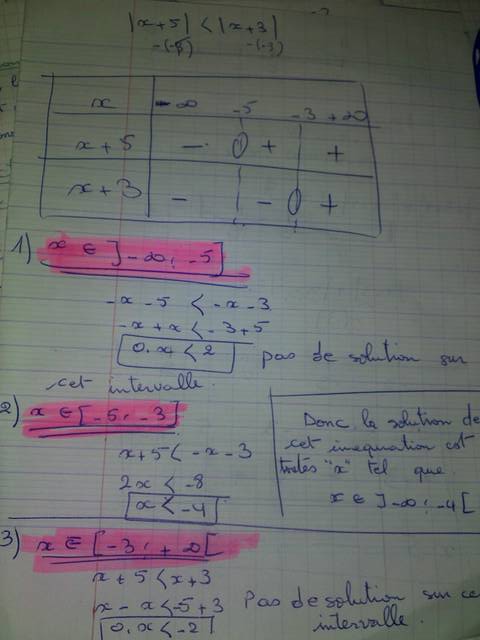 |x+5| < |x+3|
-(-5) -(-3)
x -∞ -5 -3 +∞
x+5 - 0 + +
x+3 - - 0 +
1) x ∈ ]-∞; -5]
-x-5 < -x-3
-x+x < -3+5
0.x < 2 pas de solution sur
cet intervalle.
2) x ∈ [-5; -3]
x+5 < -x-3
2x < -8
x < -4
Donc la solution de
cet inequation est
toutes "x" tel que
x ∈ ]-∞; -4[
3) x ∈ [-3; +∞[
x+5 < x+3
x-x < -5+3
0.x < -2
Pas de solution sur ce
intervalle.